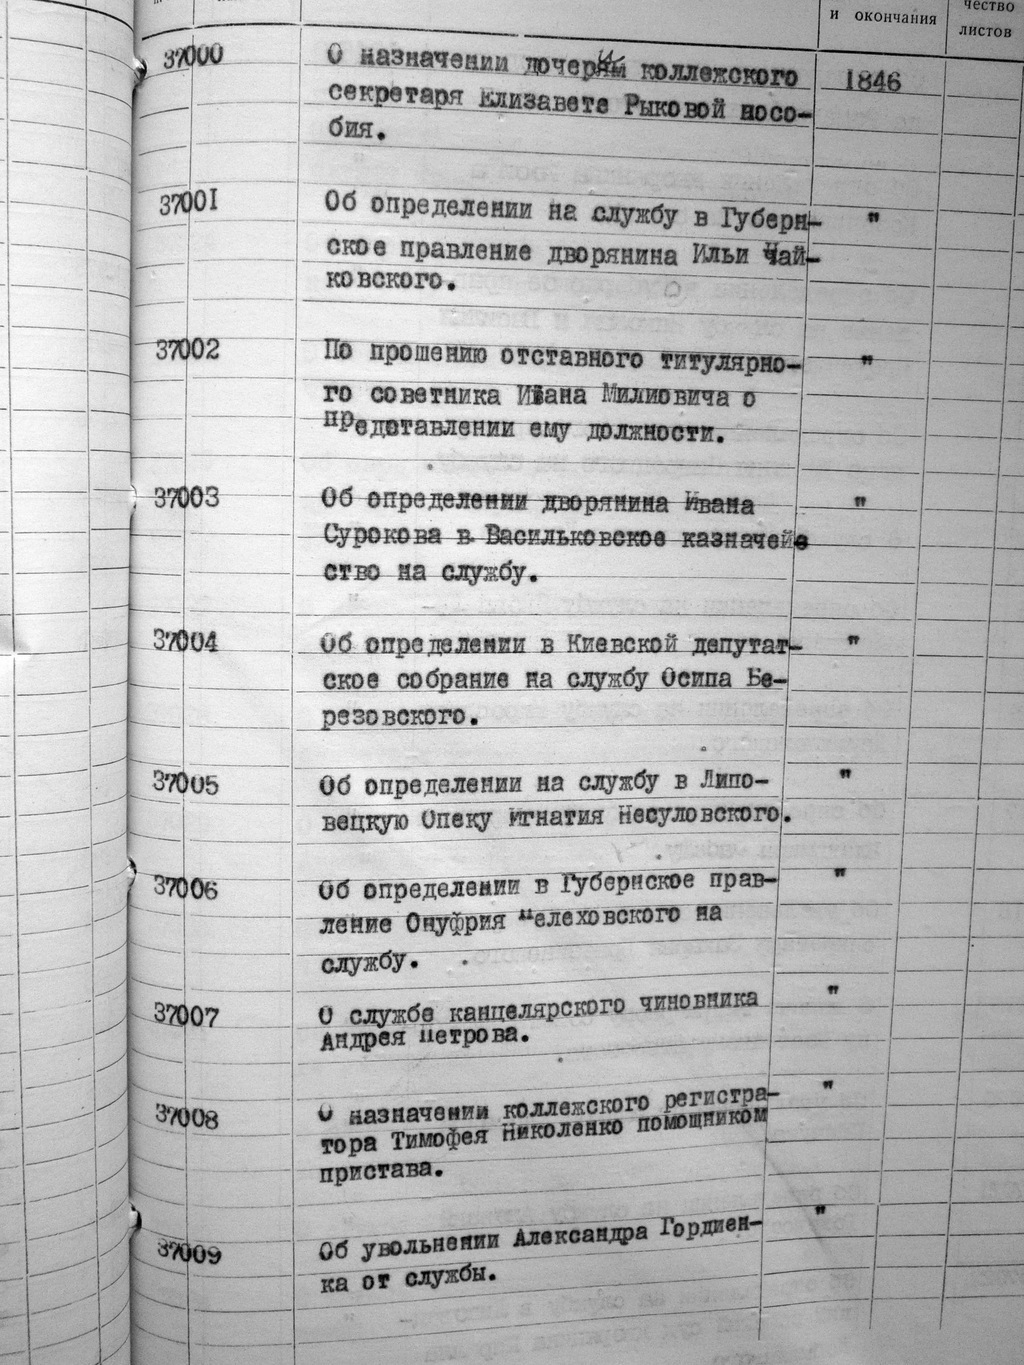 и окончания
чество
листов
37000 О назначении дочери коллежского 1846
секретаря Елизавете Рыковой посо-
бия.
37001 Об определении на службу в Губерн- "
ское правление дворянина Ильи Чай-
ковского.
37002 По прошению отставного титулярно- "
го советника Ивана Милиовича о
предоставлении ему должности.
37003 Об определении дворянина Ивана "
Сурокова в Васильковское казначей
ство на службу.
37004 Об определении в Киевской депутат- "
ское собрание на службу Осипа Бе-
резовского.
37005 Об определении на службу в Липо- "
вецкую Опеку Игнатия Несуловского.
37006 Об определении в Губернское прав- "
ление Онуфрия елеховского на
службу.
37007 О службе канцелярского чиновника "
Андрея Петрова.
37008 О назначении коллежского регистра- "
тора Тимофея Николенко помощником
пристава.
37009 Об увольнении Александра Гордиен- "
ка от службы.